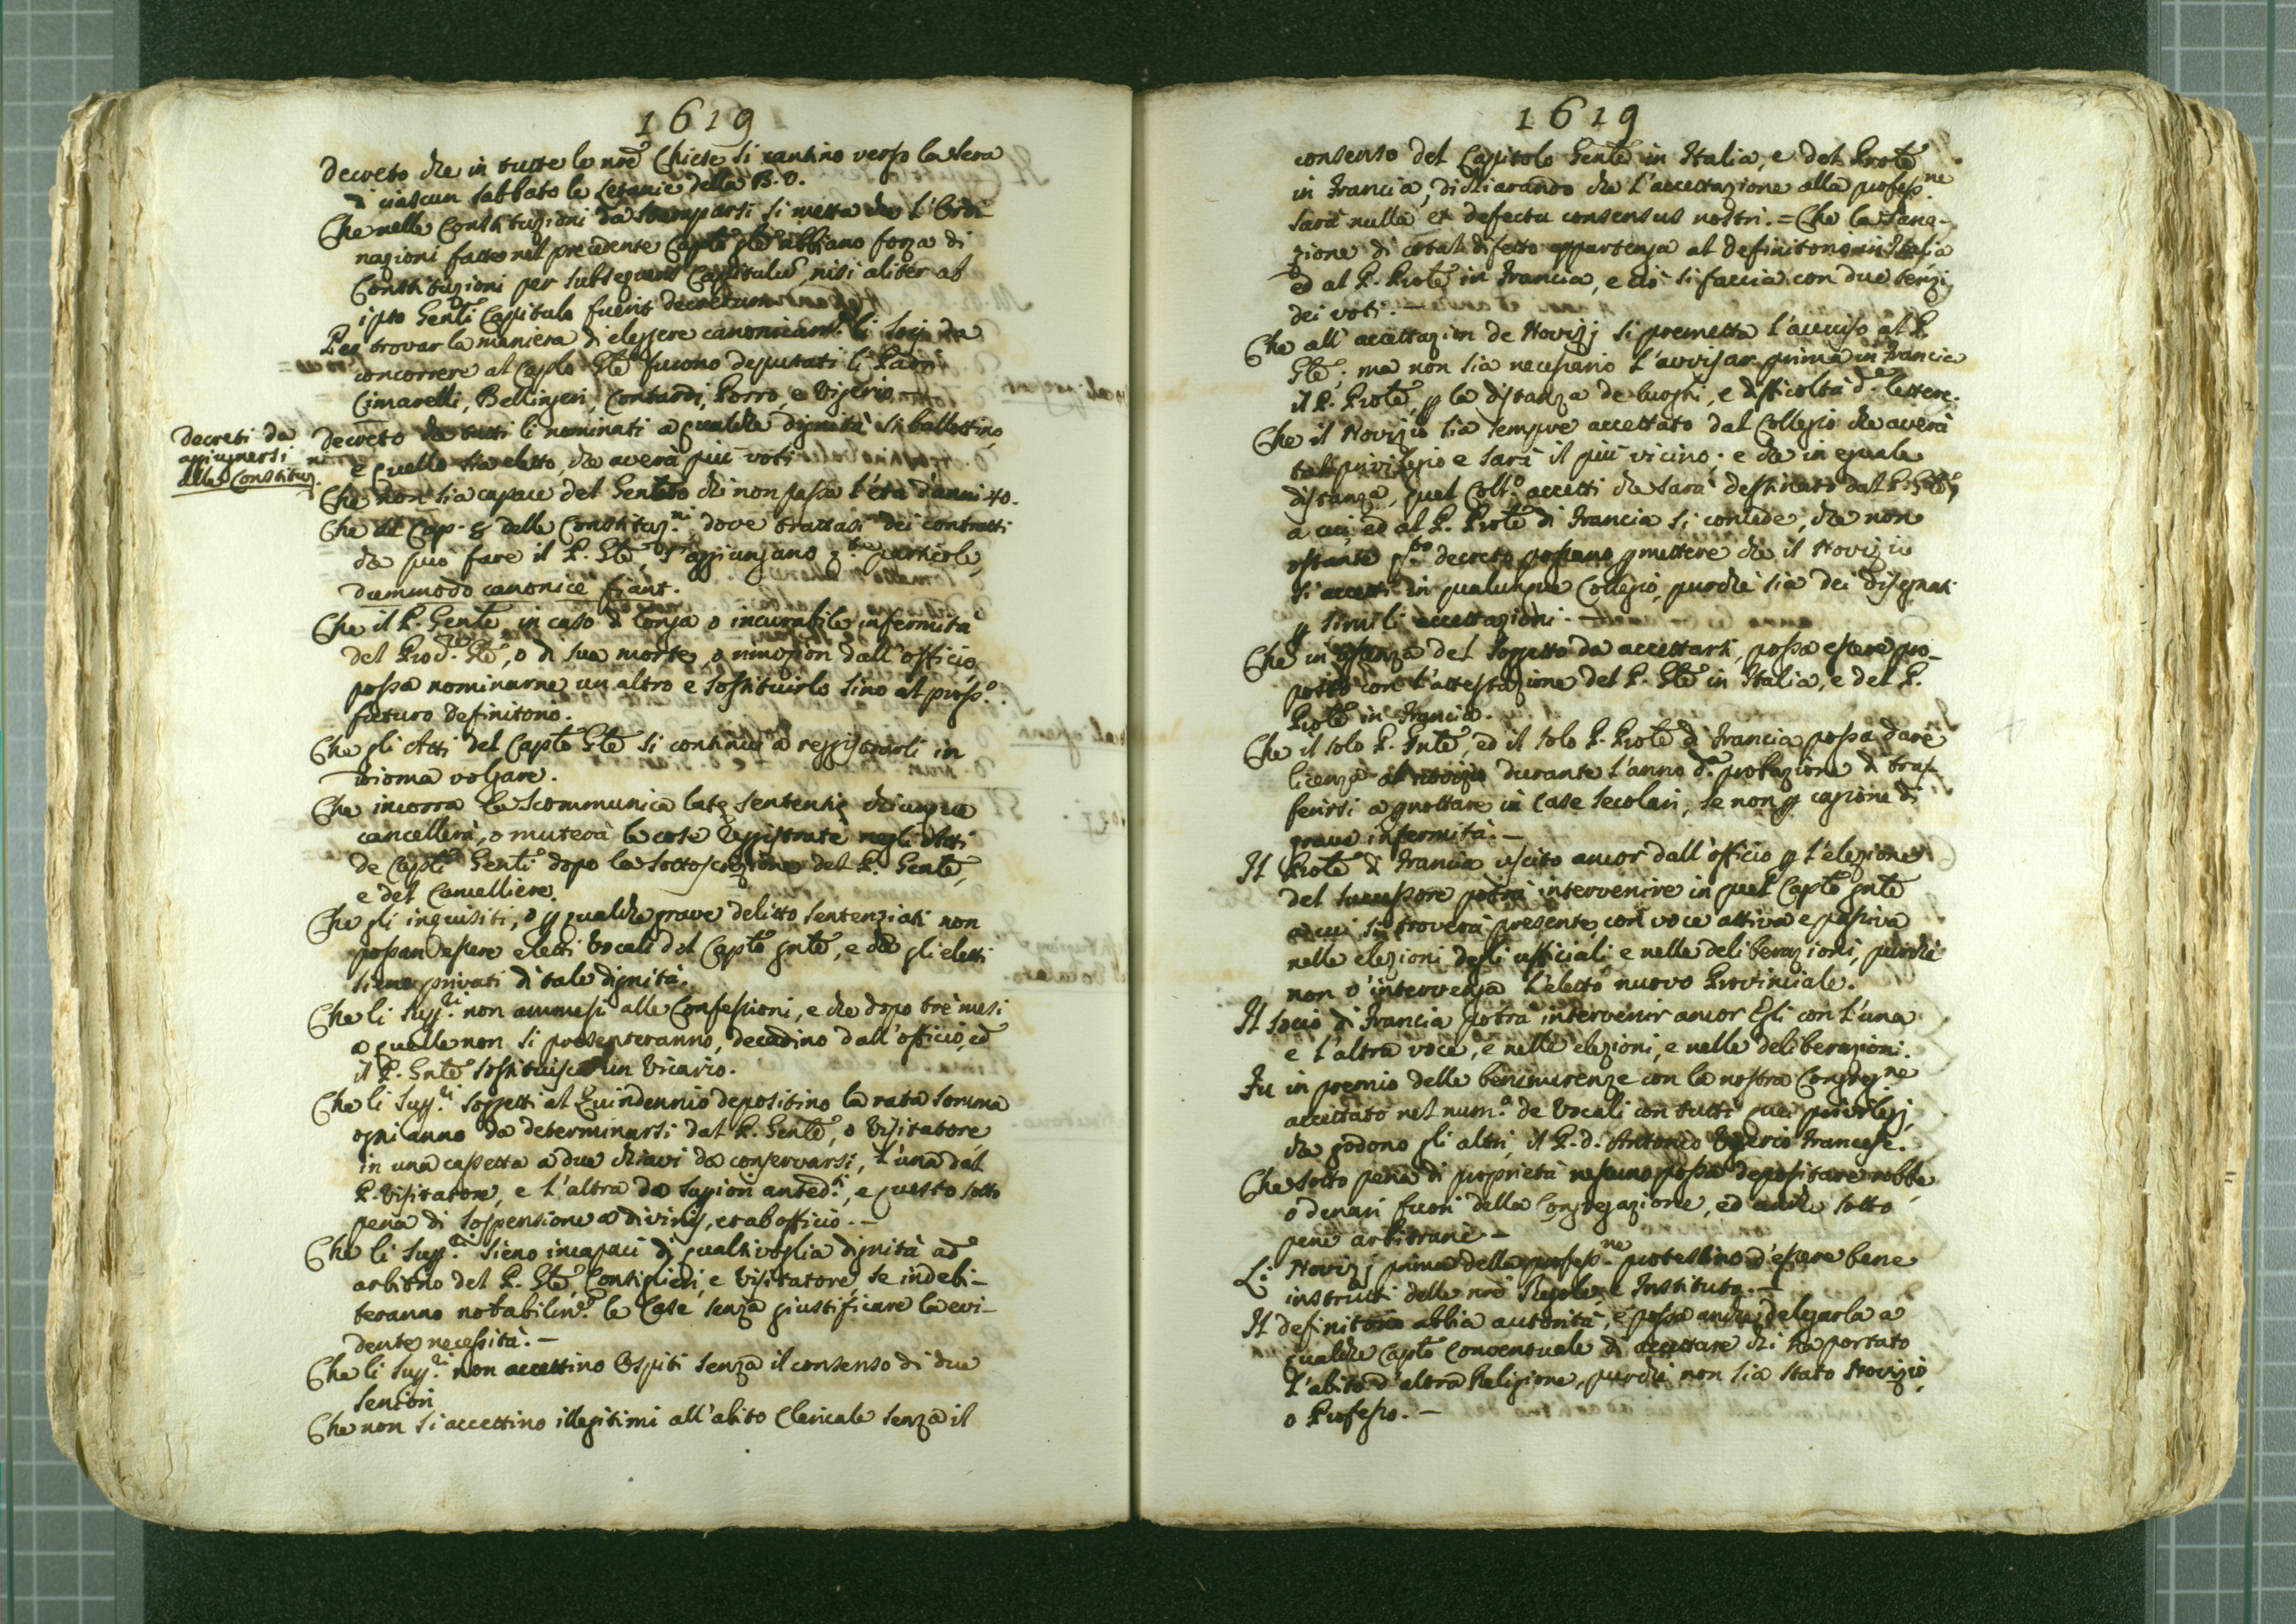 1619
Decreto che in tutte le nr̃e Chiese si cantino verso la sera
di ciascun sabbato le Letanie della B.V.
Che nelle Constituzioni da stamparsi si metta che l'Ordi-
nazioni fatte nel precedente Capl̃o gl̃e abbiano forza di
Constituzioni per subsequens Capitulũ, nisi aliter ab
ipso Gen̄li Capitulo fuerit decretum.
Per trovar la maniera di eleggere canonicam.e li Socij da
concorrere al Caplo Gl̃e furono deputati li Padri
Cimarelli, Bellingeri, Contardi, Porro, e Vigerio.
Decreti da
aggiugnersi
alle Constituz.ni
Decreto che tutti li nominati a qualche dignità si ballottino,
e quello sia eletto, che averà più voti.
Che non sia capace del Gen̄lato chi non passa l'età d'anni 40.
Che al Cap. 8 delle Constituz.ni dove trattasi dei contratti
che può fare il P. Gl̃e, s'aggiungano q.te particole,
dummodo canonice fiant.
Che il P. Gen̄le in caso di longa o incurabile infermità
del Proc.re Gl̃e, o di sua morte, o rimozion dall'officio,
possa nominarne un altro e sostituirlo sino al pross.o
futuro Definitorio.
Che gli Atti del Capl̃o Gl̃e si continui a reggistrarli in
idioma volgare.
Che incorra la scommunica latę sententię chiunque
cancellerà, o muterà le cose reggistrate negli Atti
de Capl̃i Gen̄li dopo la sottoscrizione del P. Gen̄le,
e del Cancelliere.
Che gli inquisiti, o ꝑ qualche grave delitto sentenziati non
possan essere eletti Vocali del Capl̃o gn̄le, e che gli eletti
sieno privati di tale dignità.
Che li Sup.ri non ammessi alle Confessioni, e che dopo trè mesi
a quelle non si presenteranno, decadino dall'officio, ed
il P. Gn̄le sostituisca un Vicario.
Che li Sup.ri soggetti al Quindennio depositino la rata somma
ogni anno da determinarsi dal P. Gen̄le, o Visitatore
in una cassetta a due chiavi da conservarsi, l'una dal
P. Visitatore, e l'altra da Superiori anted.ti, e questo sotto
pena di sospensione a divinis, et ab officio. —
Che li Sup.ri sieno incapaci di qualsivoglia dignità ad
arbitrio del P. Gl̃e, Consiglieri, e Visitatore, se indebi-
teranno notabilm.e le Case senza giustificare la evi-
dente necessità. —
Che li Sup.ri non accettino Ospiti senza il consenso di due
Seniori
Che non si accettino illegitimi all'abito Clericale senza il
1619
consenso del Capitolo Gen̄le in Italia, e del Prole
in Francia, dichiarando che l'accettazione alla profess.ne
sarà nulla ex defectu consensus nostri. = Che la sana-
zione di cotal difetto appartenga al Definitorio in Italia
ed al P. Prole in Francia, e ciò si faccia con due terzi
dei voti. —
Che all'accettazion de Novizj si premetta l'avviso al P.
Gl̃e; ma non sia necessario l'avvisar prima in Francia
il P. Prole, ꝑ la distanza de luoghi, e difficoltà d.e lettere.
Che il Novizio sia sempre accettato dal Collegio che averà
tal privilegio e sarà il più vicino; e che in eguale
distanza, quel Coll.o accetti che sarà destinato dal P. Gl̃e,
a cui, ed al P. Prole di Francia si concede, che non
ostante q.to decreto possano ꝑmettere che il Novizio
si accetti in qualunque Collegio, purchè sia dei disegnati
ꝑ simili accettazioni. —
Che in assenza del soggetto da accettarsi, possa essere pro-
posto con l'attestazione del P. Gl̃e in Italia, e del P.
Prole in Francia.
Che il solo P. Gn̄le, ed il solo P. Prole di Francia possa dare
licenza al novizio durante l'anno d.a probazione di tras-
ferirsi a ꝑnottare in Case secolari, se non ꝑ cagione di
grave infermità. —
Il Prole di Francia uscito ancor dall'officio ꝑ l'elezione
del successore potrà intervenire in quel Capl̃o gn̄le
a cui si troverà presente, con voce attiva e passiva
nelle elezioni degli ufficiali, e nelle deliberazioni, purchè
non v'intervenga l'eletto nuovo Provinciale.
Il Socio di Francia potrà intervenir ancor Egli con l'una
e l'altra voce, e nelle elezioni, e nelle deliberazioni.
Fu in premio delle benemerenze con la nostra Congreg.ne
accettato nel num.o de Vocali con tutti quei privilegj,
che godono gli altri, il P. D. Antonio Vigerio Francese.
Che sotto pena di proprietà nessuno possa depositare robbe
o denari fuori della Congregazione, ed anche sotto
pene arbitrarie. —
Li Novizj prima della profess.ne protestino d'essere bene
instruiti delle nr̃e Regole, e Instituto. —
Il Definitorio abbia autorità, e possa anche delegarla a
qualche Capl̃o Conventuale di accettare chi ha portato
l'abito d'altra Religione, purchè non sia stato Novizio,
o Professo. —